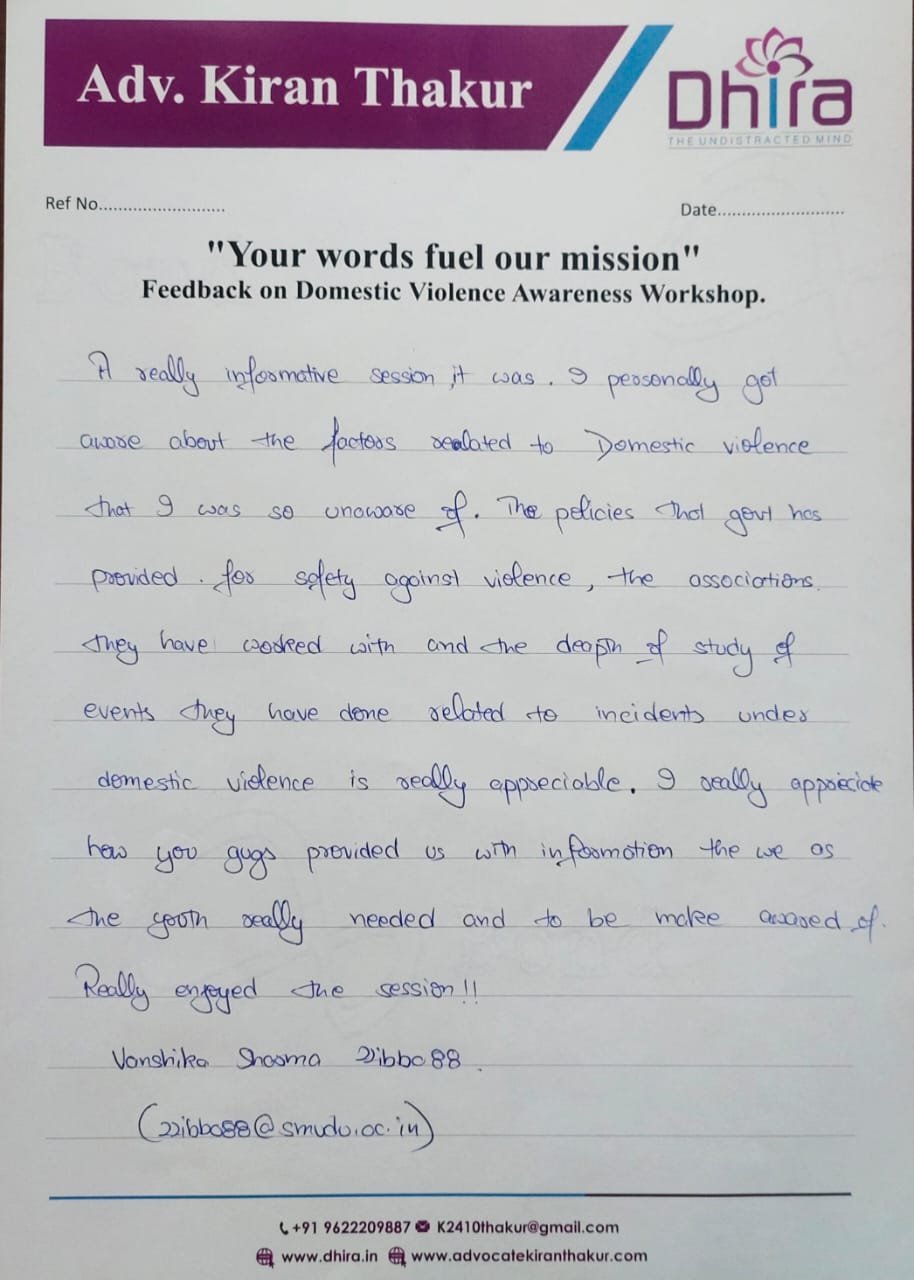 Adv. Kiran Thakur
Dhira
THE UNDISTRACTED MIND
Ref No..........................
Date..........................
"Your words fuel our mission"
Feedback on Domestic Violence Awareness Workshop.
A really informative session it was. I personally got
aware about the factors realated to Domestic violence
that I was so unaware of. The policies that govt has
provided. for safety against violence, the associations
they have worked with and the deapth of study of
events they have done related to incidents under
domestic violence is really appreciable. I really appreciate
how you guys provided us with information the we as
the youth really needed and to be make awared of.
Really enjoyed the session!!
Vanshika Sharma 22ibba88
(22ibba88@smvdu.ac.in)
+91 9622209887 K2410thakur@gmail.com
www.dhira.in www.advocatekiranthakur.com